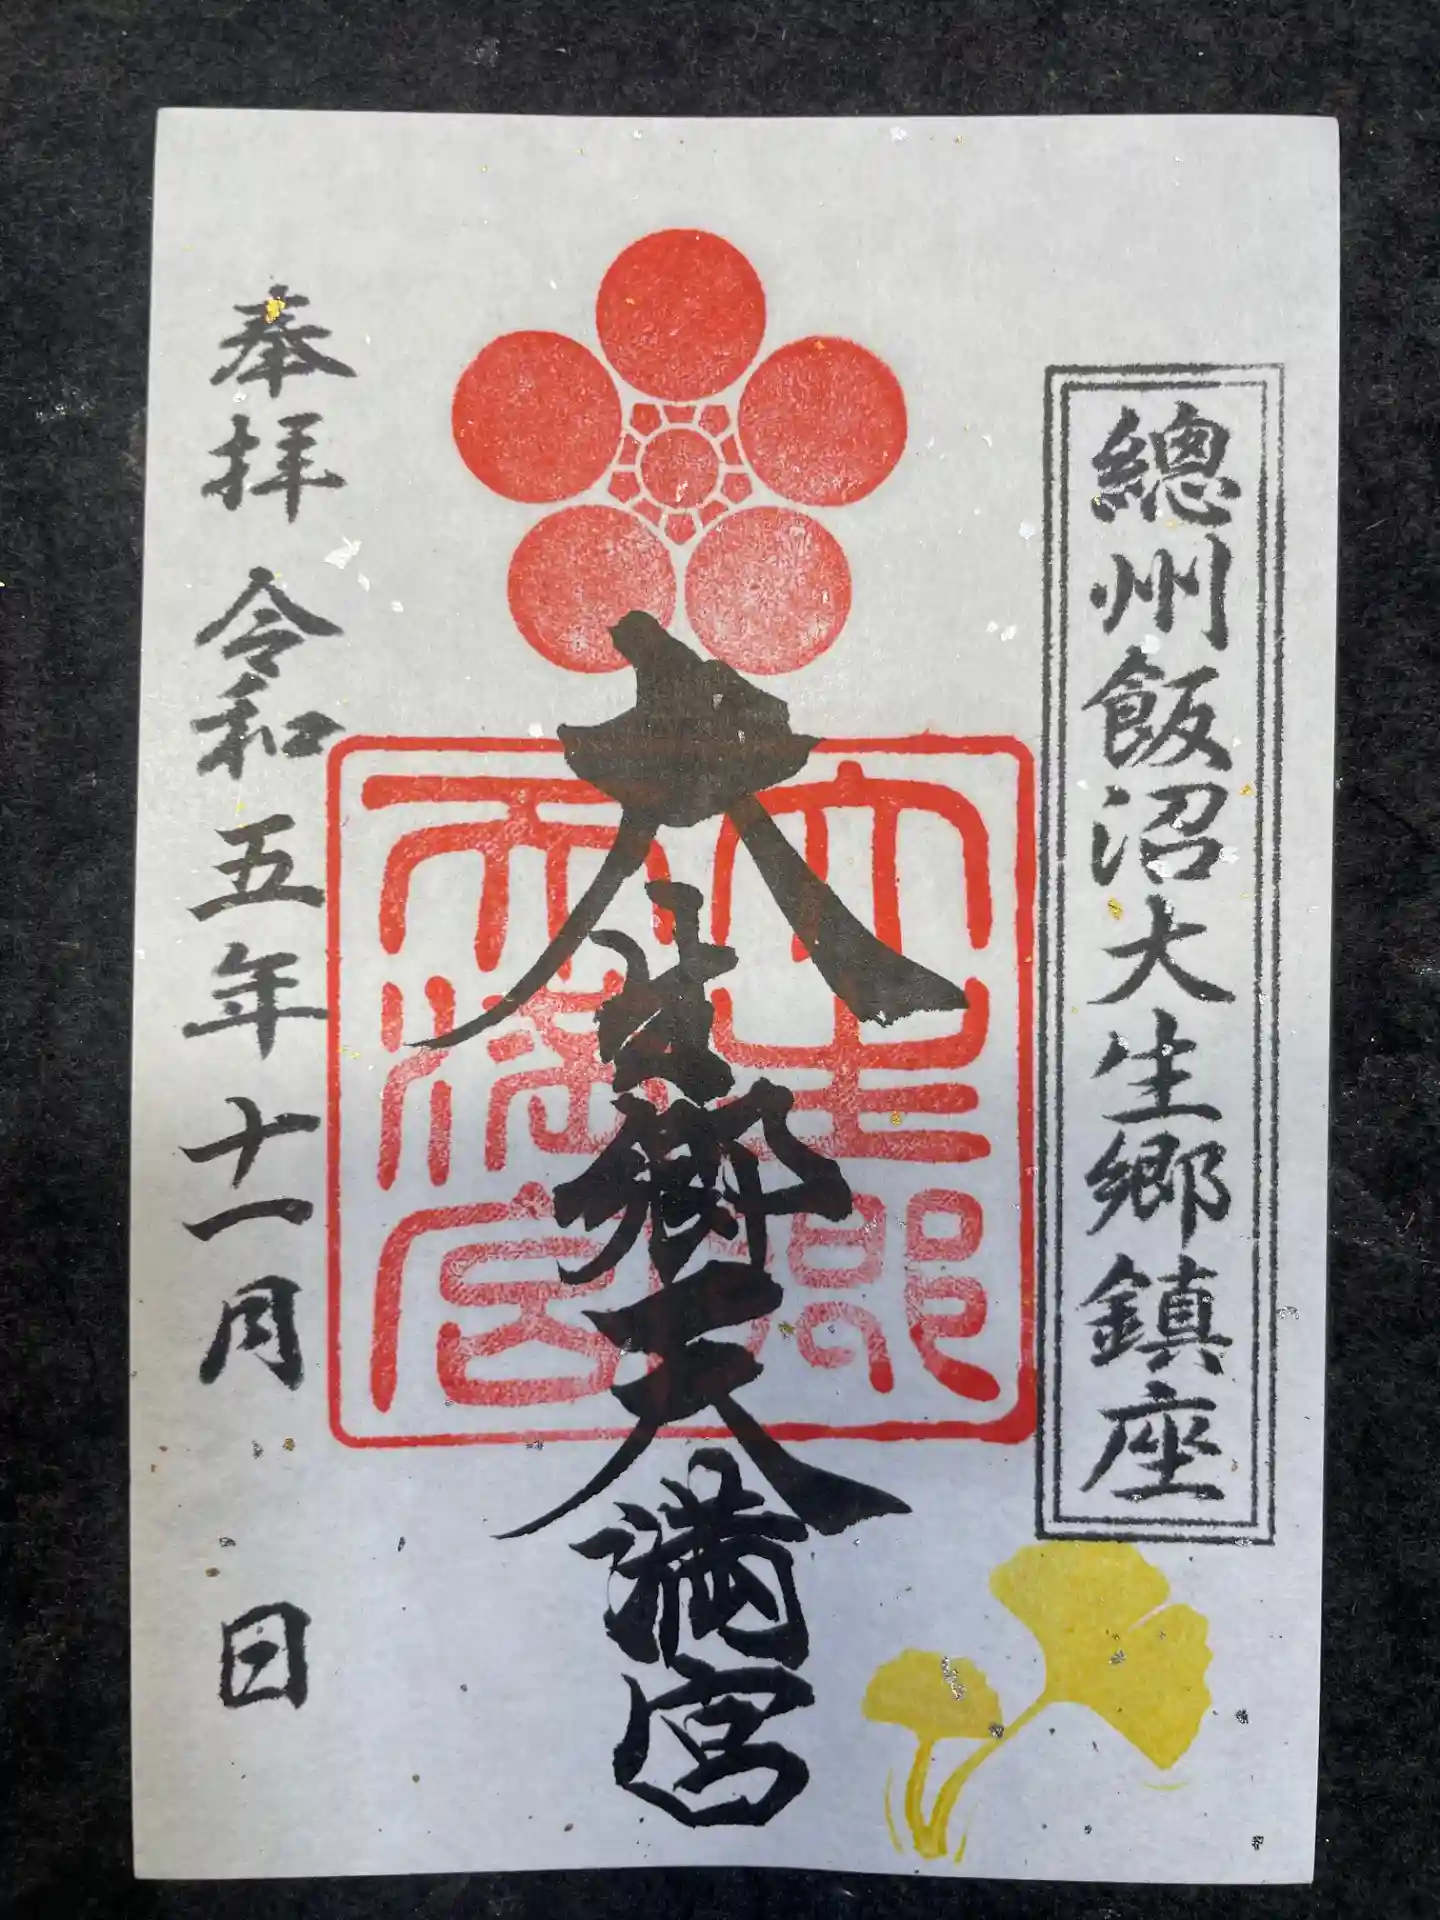 總州飯沼大生郷鎮座
大生郷天満宮
大生郷
天満宮
奉拝 令和五年十一月 日